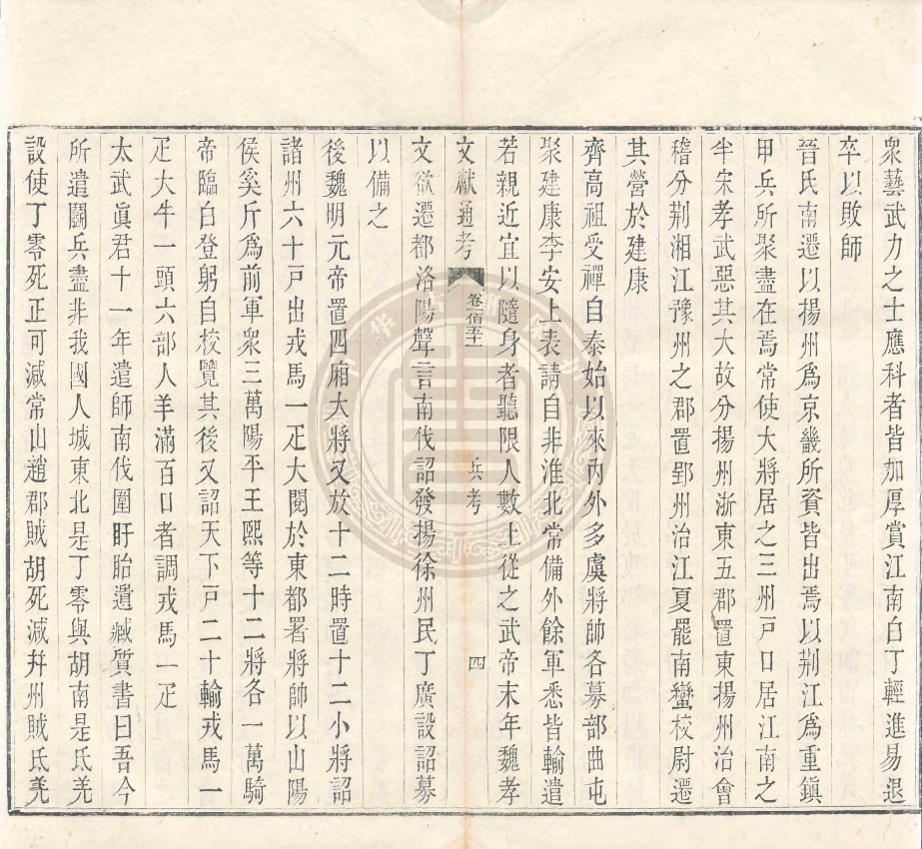 衆藝武力之士應科者皆加厚賞江南白丁輕進易退
卒以敗師
晉氏南遷以揚州爲京畿所資皆出焉以荆江爲重鎮
甲兵所聚盡在焉常使大將居之三州戸口居江南之
半宋孝武惡其大故分揚州浙東五郡置東揚州治會
稽分荆湘江豫州之郡置郢州治江夏罷南蠻校尉遷
其營於建康
齊高祖受禪自泰始以來内外多虞將帥各募部曲屯
聚建康李安上表請自非淮北常備外餘軍悉皆輸遣
若親近宜以隨身者聽限人數上從之武帝末年魏孝
文獻通考 卷一百五十一 兵考 四
文欲遷都洛陽聲言南伐詔發揚徐州民丁廣設詔募
以備之
後魏明元帝置四厢大將又放十二時置十二小將詔
諸州六十戸出戎馬一疋大閱於東都署將帥以山陽
侯奚斤爲前軍衆三萬陽平王熙等十二將各一萬騎
帝臨白登躬自校覽其後又詔天下戸二十輸戎馬一
疋大牛一頭六部人羊滿百口者調戎馬一疋
太武眞君十一年遣師南伐圍盱胎遺臧質書曰吾今
所遣鬬兵盡非我國人城東北是丁零與胡南是氐羌
設使丁零死正可減常山趙郡賊胡死減幷州賊氐羌